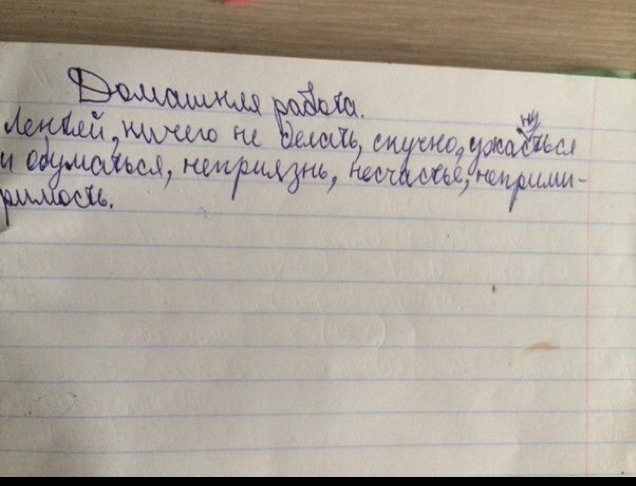 Домашняя работа.
Лентяй, ничего не делать, скучно, ужаснуться
и одуматься, неприязнь, несчастье, неприми-
римость.